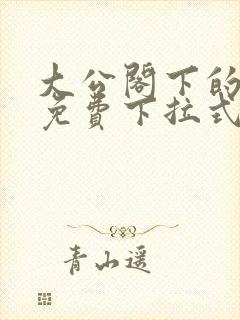 大公阁下的
免费下拉式
青山遥